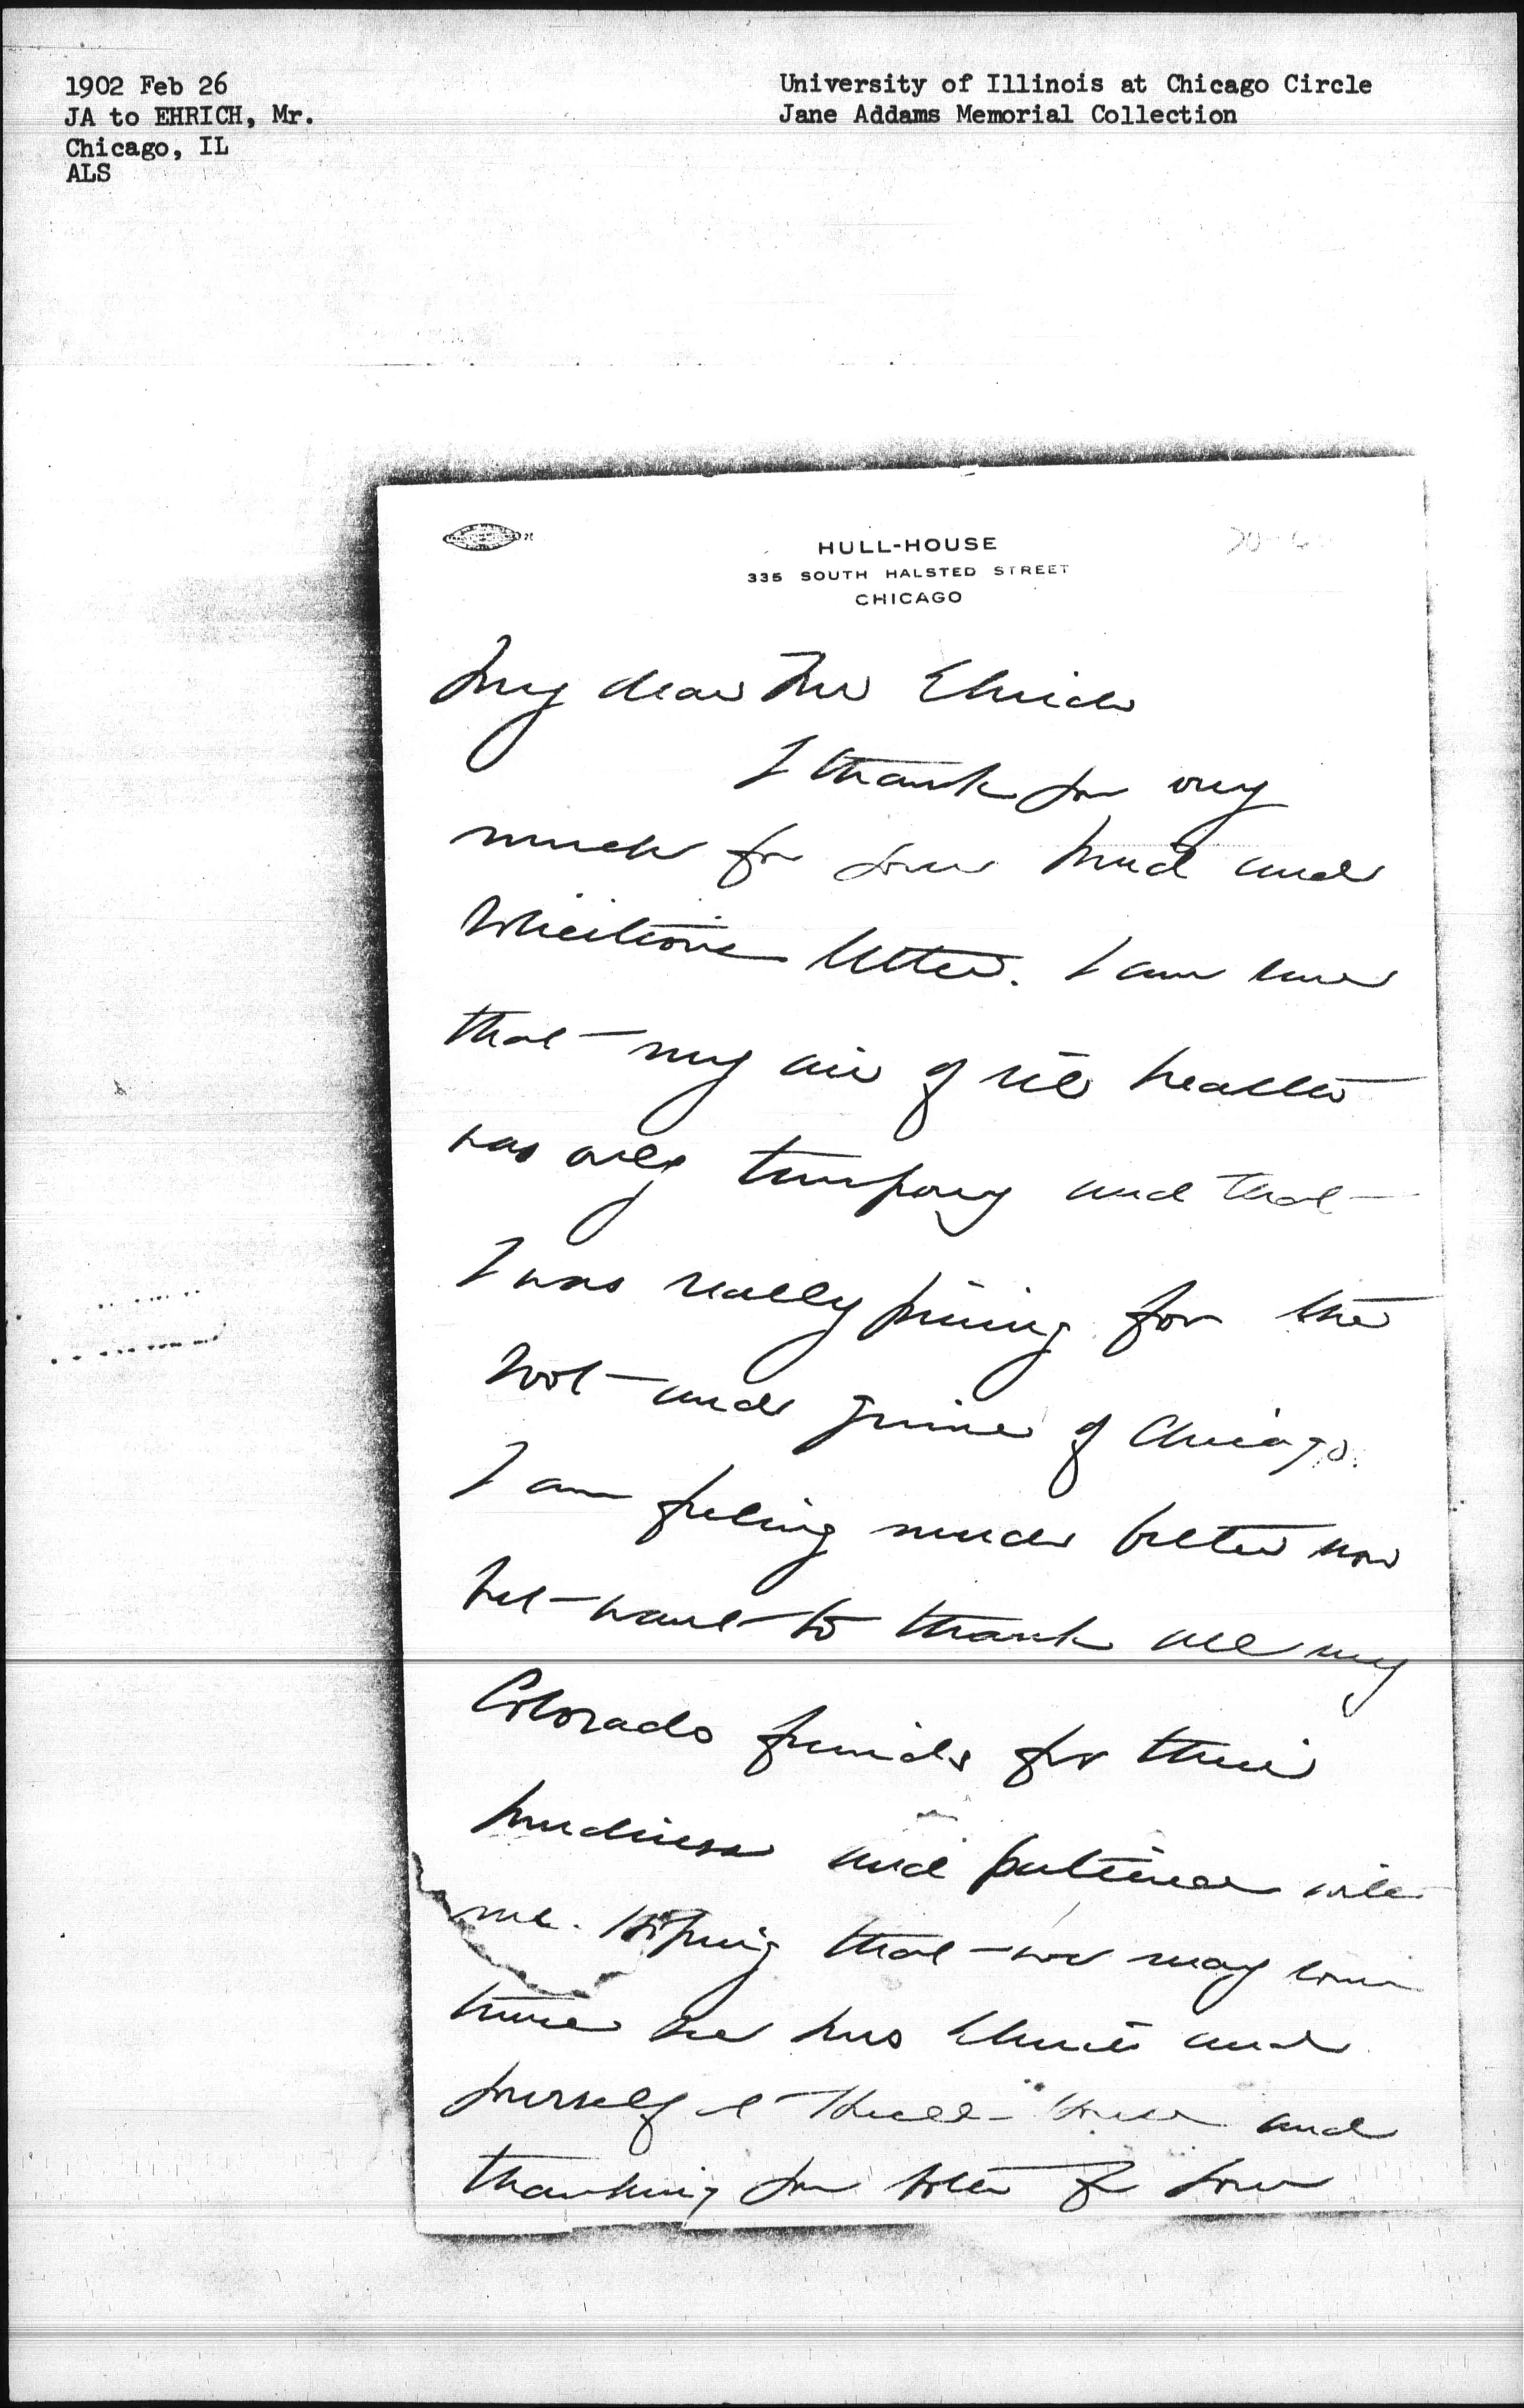 1902 Feb 26
JA to EHRICH, Mr.
Chicago, IL
ALS
University of Illinois at Chicago Circle
Jane Addams Memorial Collection
HULL-HOUSE
335 SOUTH HALSTED STREET
CHICAGO
My dear Mr Ehrich
I thank you very
much for your kind and
solicitous letter. I am sure
that my air of ill health
was only tempory and that
I was really pining for the
soot and grime of Chicago.
I am feeling much better now
but want to thank all my
Colorado friends for their
kindness and patience with
me. Hoping that we may some
time see Mrs Ehrich and
yourself at Hull-House and
thanking you both for your